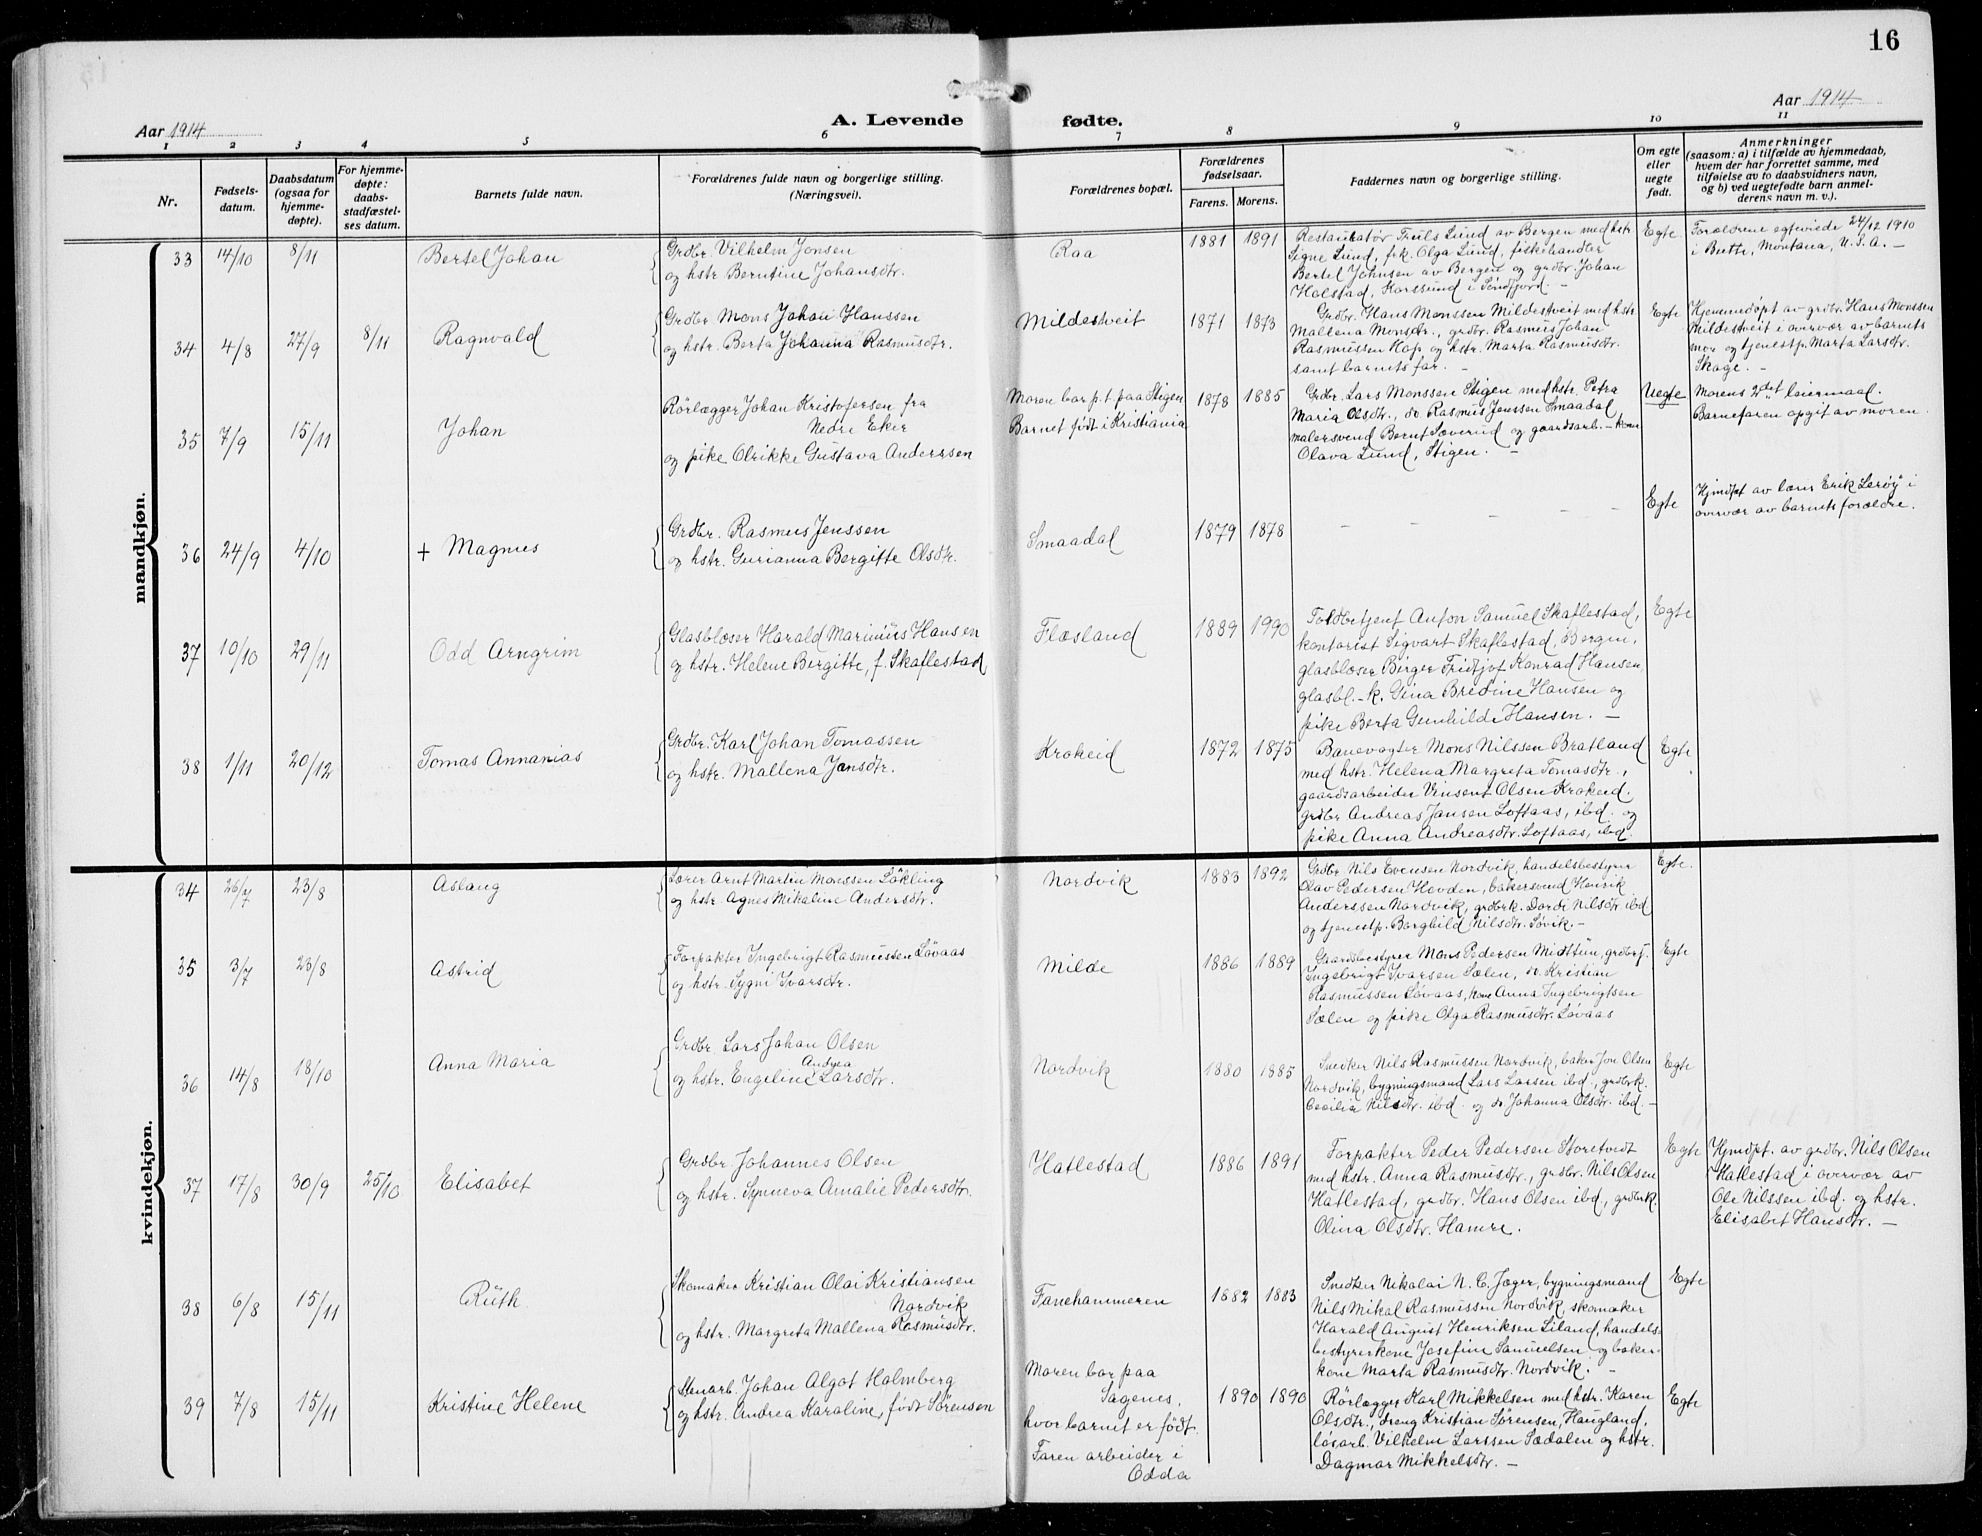 16
Aar 1914
A. Levende fødte.
Aar 1914
1 2 3 4 5 6 7 8 9 10 11
Nr.
Fødsels-
datum.
Daabsdatum
(ogsaa for
hjemme-
døpte).
For hjemme-
døpte:
daabs-
stadfæstel-
ses datum.
Barnets fulde navn.
Forældrenes fulde navn og borgerlige stilling.
(Næringsvei).
Forældrenes bopæl.
Forældrenes
fødselsaar.
Farens. Morens.
Faddernes navn og borgerlige stilling.
Om egte
eller
uegte
født.
Anmerkninger
(saasom: a) i tilfælde av hjemmedaab,
hvem der har forrettet samme, med
tilføielse av to daabsvidners navn,
og b) ved uegtefødte barn anmel-
derens navn m. v.).
mandkjøn.
33 14/10 8/11 Bertel Johan
Grdbr. Vilhelm Jonsen
og hstr. Berntine Johansdtr.
Raa 1881 1891
Restauratør Truls Lund av Bergen med hstr
Signe Lund, frk. Olga Lund, fiskehandler
Bertel Johnsen av Bergen og grdbr. Johan
Holstad, Korssund i Söndfjord. –
Egte
Forældrene egteviede 24/12 1910
i Butte, Montana, U.S.A. –
34 4/8 27/9 8/11 Ragnvald
Grdbr. Mons Johan Hanssen
og hstr. Berta Johanna Rasmusdtr.
Mildestveit 1871 1873
Grdbr. Hans Monssen Mildestveit med hstr.
Mallena Monsdtr., grdbr. Rasmus Johan
Rasmussen Hop og hstr. Marta Rasmusdtr.
samt barnets far. –
Egte
Hjemmdøpt av grdbr. Hans Monssen
Mildestveit i overvær av barnets
mor og tjenestp. Marta Larsdtr.
Skage. –
35 7/9 15/11 Johan
Rörlægger Johan Kristofersen fra
Nedre Eker
og pike Olrikke Gustava Anderssen
Moren bor p.t. paa Stigen
Barnet født i Kristiania
1878 1885
Grdbr. Lars Monssen Stigen med hstr. Petra
Maria Olsdtr., do. Rasmus Jenssen Smaadal,
malersvend Bernt Sæverud og gaardsarb.-kone
Olava Lund, Stigen. –
Uegte
Morens 2det leiermaal.
Barnefaren opgit av moren.
36 24/9 4/10 + Magnus
Grdbr. Rasmus Jenssen
og hstr. Gurianna Bergitte Olsdtr.
Smaadal 1879 1878
– – – – – –
Egte
Hjmdpt av lærer Erik Lerøy i
overvær av barnets forældre.
37 10/10 29/11 Odd Arngrim
Glasblæser Harald Marinius Hansen
og hstr. Helene Bergitte, f. Skaflestad
Flæsland 1889 1990
Toldbetjent Anton Samuel Skaflestad,
kontorist Sigvart Skaflestad, Bergen,
glasblæser Birger Fridtjof Konrad Hansen,
glasbl.-k. Gina Bredine Hansen og
pike Berta Gunhilde Hansen. –
Egte
38 1/11 20/12 Tomas Annanias
Grdbr. Karl Johan Tomassen
og hstr. Mallena Jansdtr.
Krokeid 1872 1875
Banevogter Mons Nilssen Bratland
med hstr. Helena Margreta Tomasdtr.,
gaardsarbeider Vinsent Olsen Krokeid.
grdbr Andreas Jansen Loftaas, ibd. og
pike Anna Andreasdtr. Loftaas, ibd.
Egte
kvindekjøn.
34 26/7 23/8 Aslaug
Lærer Arnt Martin Monssen Løkling
og hstr. Agnes Mikaline Andersdtr.
Nordvik 1883 1892
Grdbr Nils Evensen Nordvik, handelsbestyrer
Olav Pedersen Hovden, bakersvend Henrik
Anderssen Nordvik, grdbrk. Dordi Nilsdtr ibd
og tjenestp. Borghild Nilsdtr. Søvik. –
Egte.
35 3/7 23/8 Astrid
Forpakter Ingebrigt Rasmussen Løvaas
og hstr. Sygni Ivarsdtr.
Milde 1886 1889
Gaardsbestyrer Mons Pedersen Midttun, grdbr.
Ingebrigt Ivarsen Sælen, do. Kristian
Rasmussen Løvaas, kone Anna Ingebrigtsen
Sælen og pike Olga Rasmusdtr. Løvaas
Egte
36 14/8 18/10 Anna Maria
Grdbr. Lars Johan Olsen
Andrea
og hstr. Engeline Larsdtr.
Nordvik 1880 1885
Snedker Nils Rasmussen Nordvik, baker Jon Olsen
Nordvik, bygningsmand Lars Larsen ibd., grdbrk.
Cecilia Nilsdtr. ibd. og do Johanna Olsdtr. ibd. –
Egte
37 17/8 30/9 25/10 Elisabet
Grdbr. Johannes Olsen
og hstr. Synneva Amalie Pedersdtr.
Hatlestad 1886 1891
Forpakter Peder Pedersen Storetvedt
med hstr. Anna Rasmusdtr., grdbr. Nils Olsen
Hatlestad, grdbr. Hans Olsen ibd, grdbrk.
Olina Olsdtr. Hamre.
Egte
Hjmdpt. av grdbr. Nils Olsen
Hatlestad i overvær av
Ole Nilssen ibd. og hstr.
Elisabet Hansdtr. –
38 6/8 15/11 Rŭth
Skomaker Kristian Olai Kristiansen
Nordvik
og hstr. Margreta Mallena Rasmusdtr.
Fanehammeren 1882 1883
Snedker Nikolai N. C. Jæger, bygningsmand
Nils Mikal Rasmussen Nordvik, skomaker
Harald August Henriksen Liland, handels-
bestyrerkone Josefine Samuelsen og baker-
kone Marta Rasmusdtr. Nordvik. –
Egte
39 7/8 15/11 Kristine Helene
Stenarb. Johan Algot Holmberg
og hstr. Andrea Karaline, født Sørensen
Moren bor paa
Sagenes,
hvor barnet er født.
Faren arbeider i
Odda
1890 1890
Rørlægger Karl Mikkelsen med hstr. Karen
Olsdtr., dreng Kristian Sørensen, Haugland,
løsarb. Vilhelm Larssen Sædalen og hstr.
Dagmar Mikkelsdtr. –
Egte